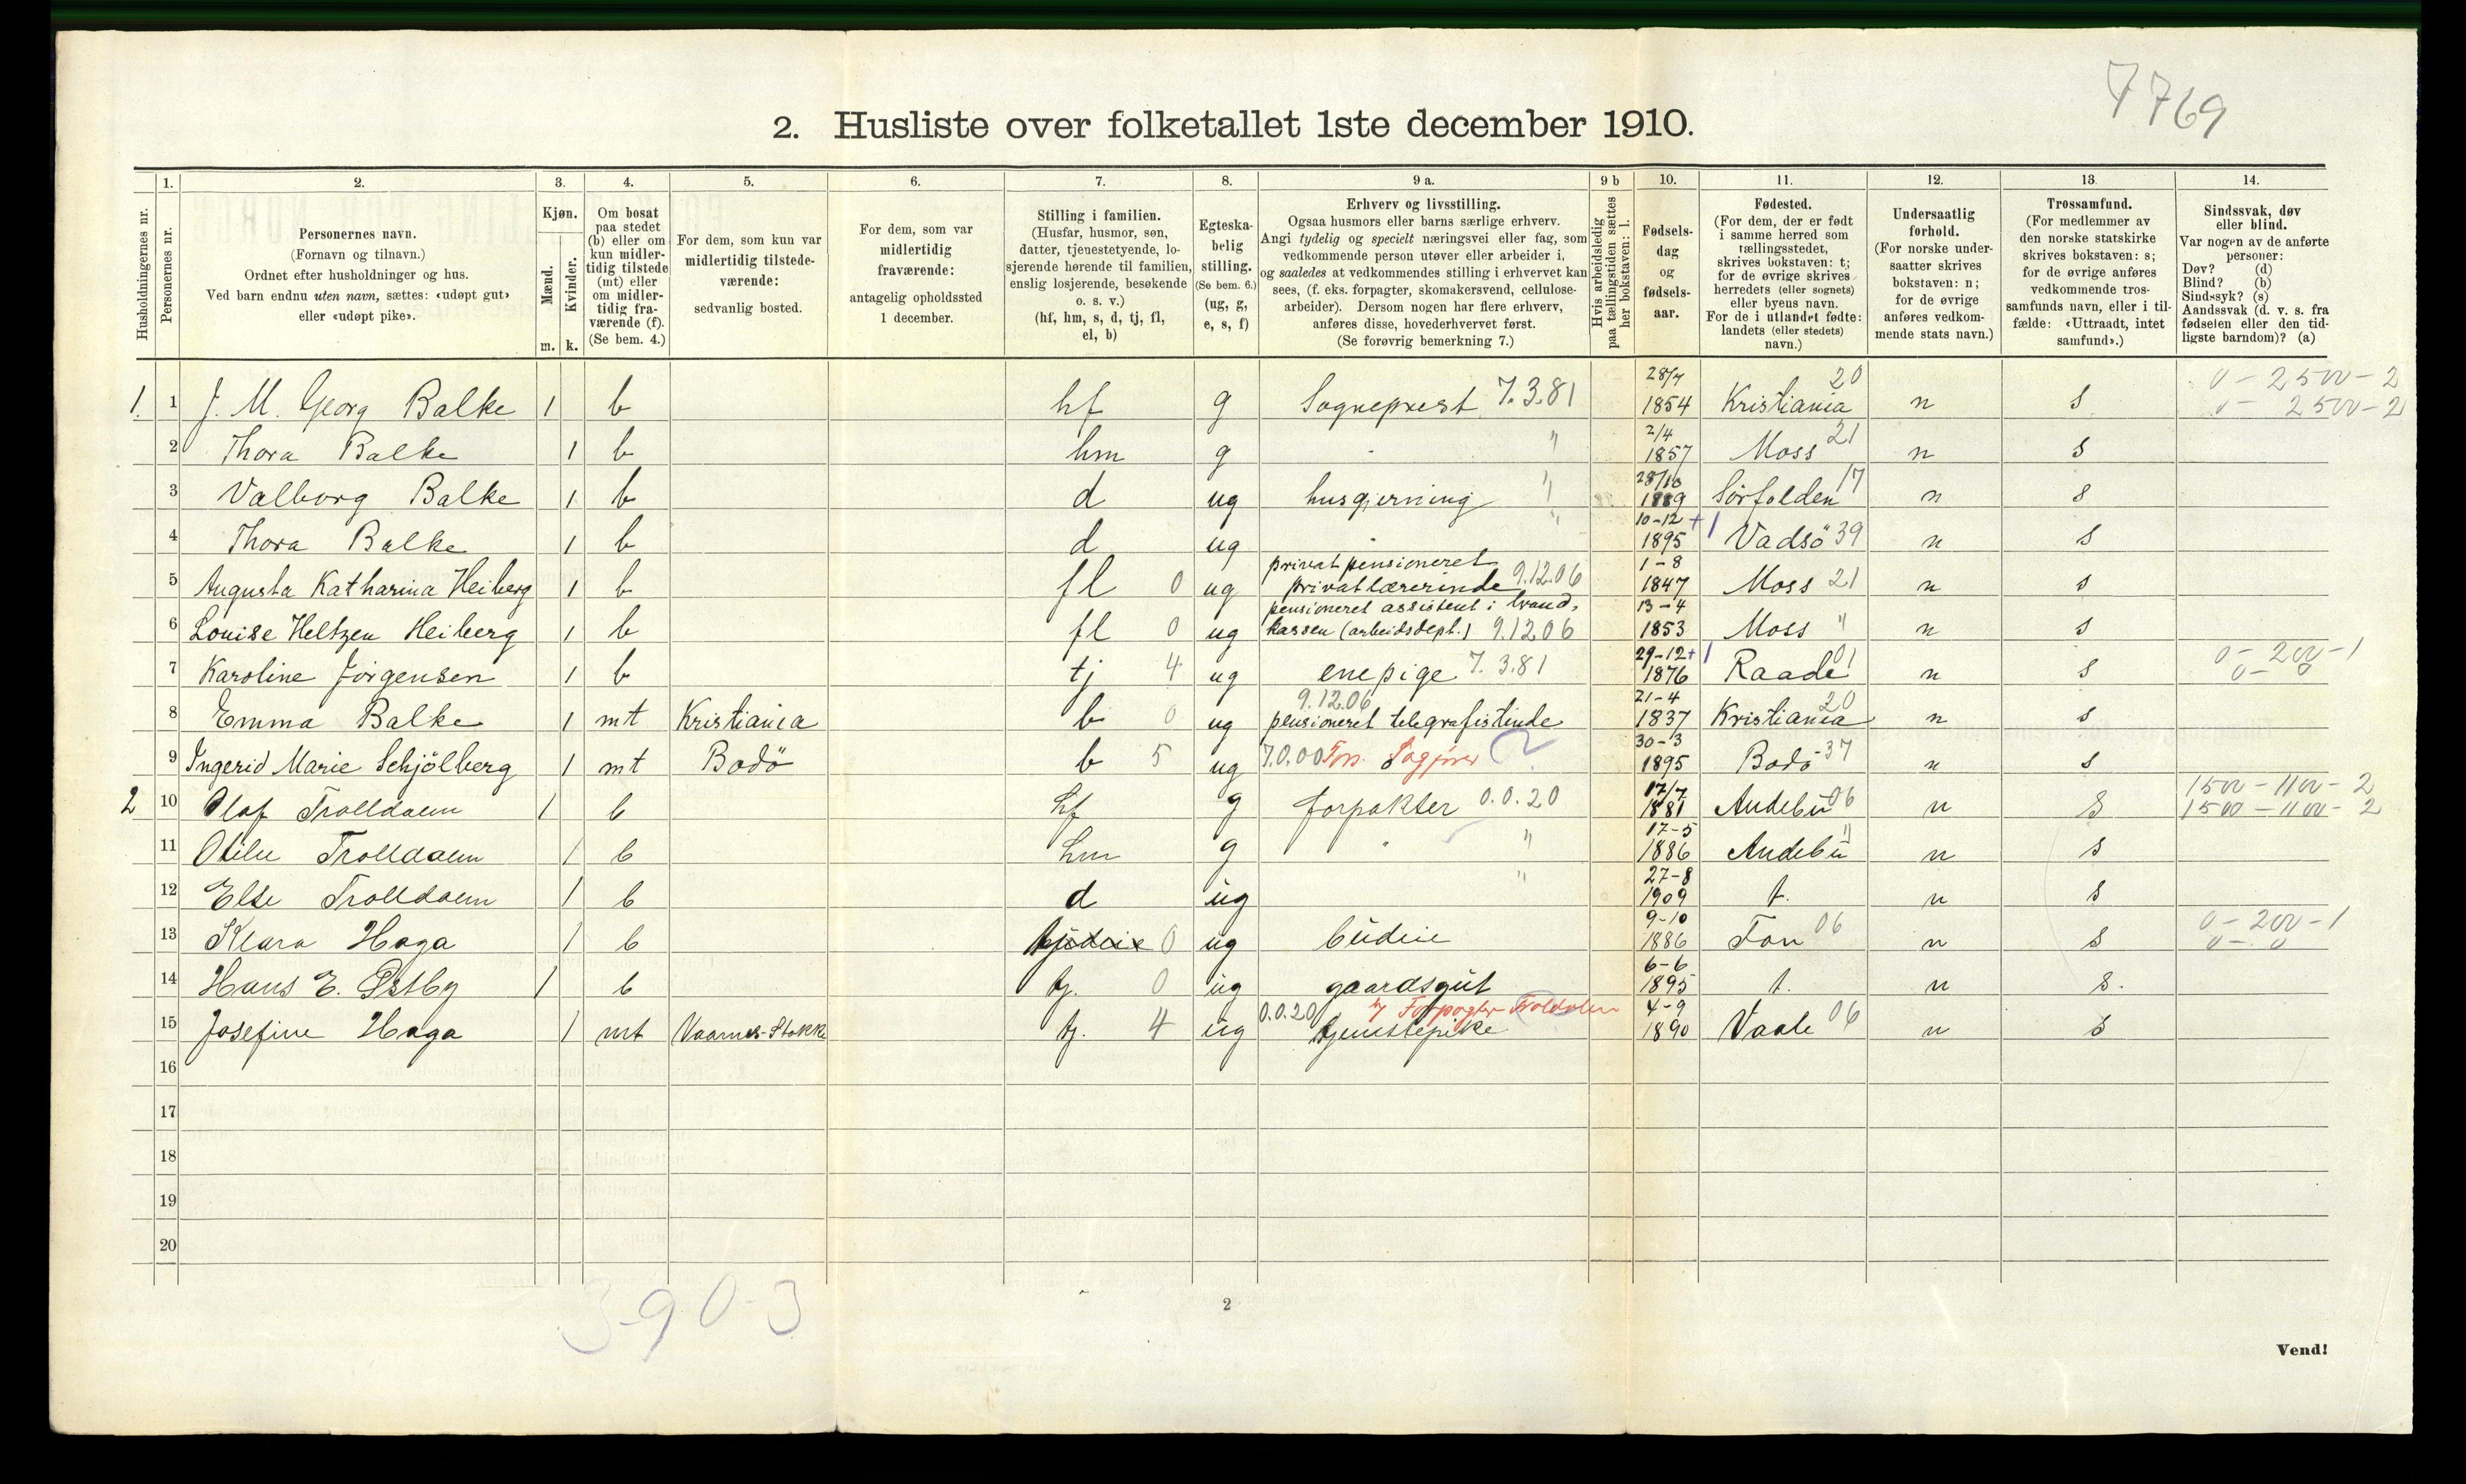 7769
2. Husliste over folketallet 1ste december 1910.
Husholdningernes nr.
1.
Personernes nr.
2.
Personernes navn.
(Fornavn og tilnavn.)
Ordnet efter husholdninger og hus.
Ved barn endnu uten navn, sættes: «udøpt gut»
eller «udøpt pike».
3.
Kjøn.
Mænd.
Kvinder.
m. k.
4.
Om bosat
paa stedet
(b) eller om
kun midler-
tidig tilstede
(mt) eller
om midler-
tidig fra-
værende (f).
(Se bem. 4.)
5.
For dem, som kun var
midlertidig tilstede-
værende:
sedvanlig bosted.
6.
For dem, som var
midlertidig
fraværende:
antagelig opholdssted
1 december.
7.
Stilling i familien.
(Husfar, husmor, søn,
datter, tjenestetyende, lo-
sjerende hørende til familien,
enslig losjerende, besøkende
o. s. v.)
(hf, hm, s, d, tj, fl,
el, b)
8.
Egteska-
belig
stilling.
(Se bem. 6.)
(ug, g,
e, s, f)
9 a.
Erhverv og livsstilling.
Ogsaa husmors eller barns særlige erhverv.
Angi tydelig og specielt næringsvei eller fag, som
vedkommende person utøver eller arbeider i,
og saaledes at vedkommendes stilling i erhvervet kan
sees, (f. eks. forpagter, skomakersvend, cellulose-
arbeider). Dersom nogen har flere erhverv,
anføres disse, hovederhvervet først.
(Se forøvrig bemerkning 7.)
9 b
Hvis arbeidsledig
paa tællingstiden sættes
her bokstaven: l.
10.
Fødsels-
dag
og
fødsels-
aar.
11.
Fødested.
(For dem, der er født
i samme herred som
tællingsstedet,
skrives bokstaven: t;
for de øvrige skrives
herredets (eller sognets)
eller byens navn.
For de i utlandet fødte:
landets (eller stedets)
navn.)
12.
Undersaatlig
forhold.
(For norske under-
saatter skrives
bokstaven: n;
for de øvrige
anføres vedkom-
mende stats navn.)
13.
Trossamfund.
(For medlemmer av
den norske statskirke
skrives bokstaven: s;
for de øvrige anføres
vedkommende tros-
samfunds navn, eller i til-
fælde: «Uttraadt, intet
samfund».)
14.
Sindssvak, døv
eller blind.
Var nogen av de anførte
personer:
Døv? (d)
Blind? (b)
Sindssyk? (s)
Aandssvak (d. v. s. fra
fødselen eller den tid-
ligste barndom)? (a)
1. 1 J. M. Georg Balke 1 b hf g Sogneprest 7.3.81 28/7 1854 Kristiania 20 n s 0 - 2500 - 2 0 - 2500 - 2
2 Thora Balke 1 b hm g " 2/4 1857 Moss 21 n s
3 Valborg Balke 1 b d ug husgjerning " 28/10 1889 Sørfolden 17 n s
4 Thora Balke 1 b d ug " 10-12 1895 Vadsö 39 n s
5 Augusta Katharina Heiberg 1 b fl 0 ug privat pensioneret privatlærerinde 9.12.06 1-8 1847 Moss 21 n s
6 Louise Heltzen Heiberg 1 b fl 0 ug pensioneret assistent i brand, kassen (arbeidsdept.) 9.12.06 13-4 1853 Moss " n s
7 Karoline Jörgensen 1 b tj 4 ug enepige 7.3.81 29-12 1876 Raade 01 n s 0 - 200 - 1 0 - 0
8 Emma Balke 1 mt Kristiania b 0 ug 9.12.06 pensioneret telegrafistinde 21-4 1837 Kristiania 20 n s
9 Ingerid Marie Schjölberg 1 mt Bodö b 5 ug 7.0.00 Fors. Sagfører 30-3 1895 Bodö 37 n s
2 10 Olaf Trolldalen 1 b hf g forpakter 0.0.20 17/7 1881 Andebu 06 n s 1500 - 1100 - 2 1500 - 1100 - 2
11 Otilie Trolldalen 1 b hm g " 17-5 1886 Andebu " n s
12 Else Trolldalen 1 b d ug " 27-8 1909 t. n s
13 Klara Haga 1 b 0 ug budeie 9-10 1886 Fon 06 n s 0 - 200 - 1 0 - 0
14 Hans E. Østby 1 b tj. 0 ug gaardsgut 6-6 1895 t. n s.
15 Josefine Haga 1 mt Vaarnes-Stokke tj. 4 ug 0.0.20 hj Forpagter Troldalen tjenstepike 4-9 1890 Vaale 06 n s
16
17
18
19
20
3-90-3
2
Vend!